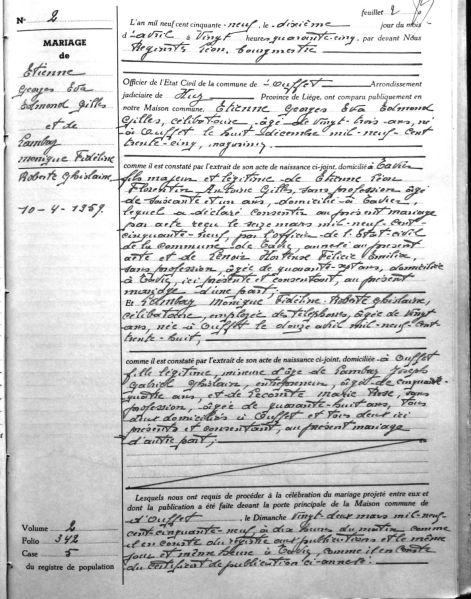 feuillet 2
N° 2
MARIAGE
de
Etienne
Georges Eva
Edmond Gilles
et de
Lambay
Monique Fidéline
Roberte Ghislaine
10-4-1959.
L'an mil neuf cent cinquante-neuf, le dixième jour du mois
d'avril à vingt heures quarante-cinq, par devant Nous
bourgmestre
Officier de l'Etat Civil de la commune de Ouffet Arrondissement
judiciaire de Huy Province de Liège, ont comparu publiquement en
notre Maison commune, Etienne Georges Eva Edmond
Gilles, célibataire, âgé de vingt-trois ans, né
à Ouffet le huit décembre mil-neuf-cent
trente-cinq,
comme il est constaté par l'extrait de son acte de naissance ci-joint, domicilié à Tavier
fils majeur et légitime de Etienne Léon
Florentin Antoine Gilles, sans profession, âgé
de soixante et un ans, domicilié à Tavier
lequel a déclaré consentir au présent mariage
par acte reçu le seize mars mil-neuf-cent-
cinquante-neuf, par l'officier de l'Etat civil
de la commune de Tavier, annexé au présent
acte et de Lenoir Hortense Félicie
sans profession, âgée de quarante-sept ans, domiciliée
à Tavier, ici présente et consentant, au présent
mariage d'une part;
Et Lambay Monique Fidéline Roberte Ghislaine,
célibataire, employée des téléphones, âgée de vingt
ans, née à Ouffet le douze avril mil-neuf-cent
trente-huit,
comme il est constaté par l'extrait de son acte de naissance ci-joint, domiciliée à Ouffet
fille légitime, mineure d'âge de Lambay Joseph
Gabriel Ghislain, entrepreneur, âgé de cinquante-
quatre ans, et de Lecomte Marie Rose, sans
profession, âgée de quarante-huit ans, tous
deux domiciliés à Ouffet et tous deux ici
présents et consentant, au présent mariage
d'autre part;
Lesquels nous ont requis de procéder à la célébration du mariage projeté entre eux et
dont la publication a été faite devant la porte principale de la Maison commune de
d'Ouffet, le Dimanche vingt-deux mars mil-neuf-
cent-cinquante-neuf, à dix heures du matin comme
il en conste du registre aux publications et le même
jour et même heure à Tavier, comme il en conste
du certificat de publication ci-annexé.
Volume 2
Folio 342
Case 5
du registre de population